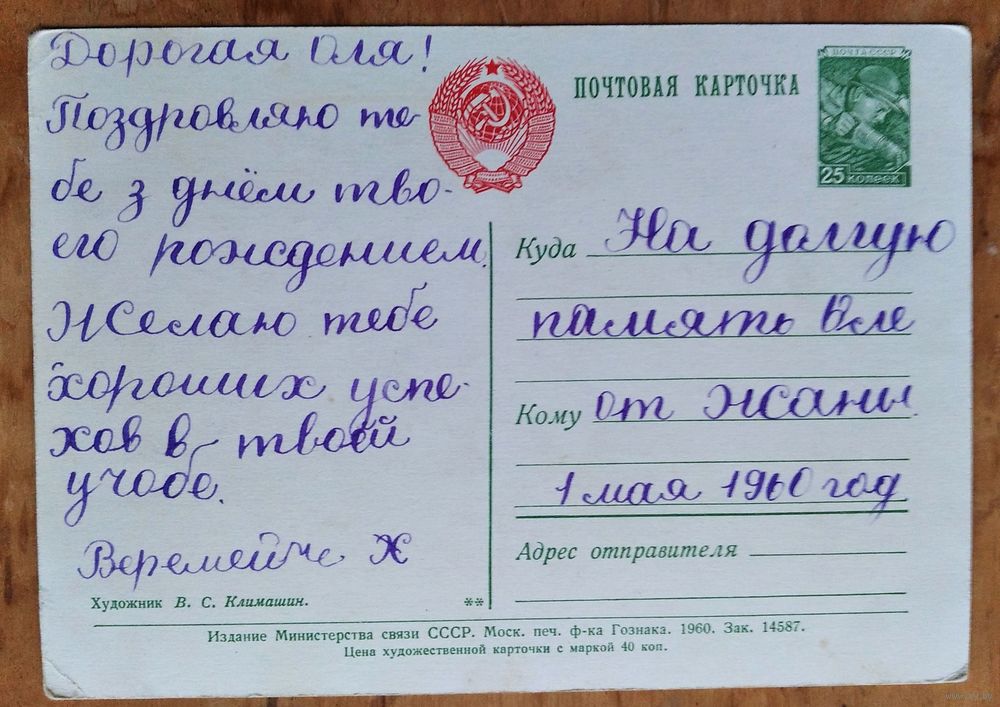 Дорогая Оля!
Поздровляю те-
бе з днём тво-
его рождением.
Желаю тебе
хороших успе-
хов в твоей
учобе.
Веремейче Ж
Художник В. С. Климашин.
**
ПОЧТОВАЯ КАРТОЧКА
ПОЧТА СССР
25 копеек
Куда На долгую
память Оле
Кому от Жаны.
1 мая 1960 год
Адрес отправителя
Издание Министерства связи СССР. Моск. печ. ф-ка Гознака. 1960. Зак. 14587.
Цена художественной карточки с маркой 40 коп.